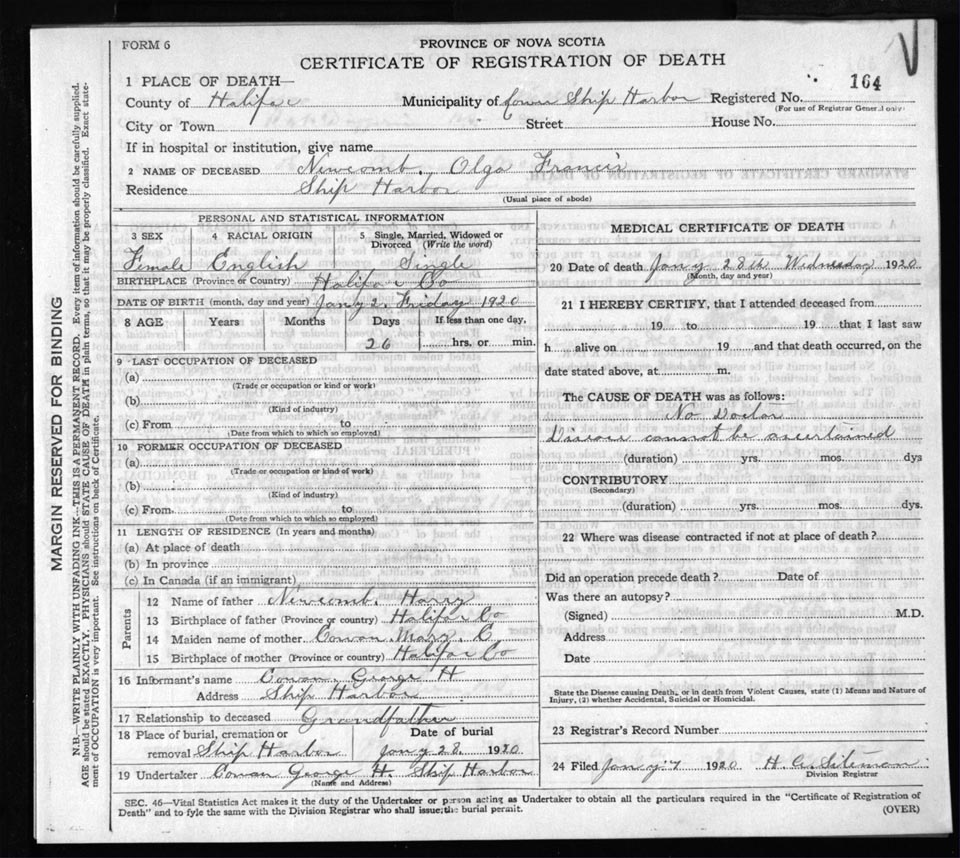 FORM 6
PROVINCE OF NOVA SCOTIA
CERTIFICATE OF REGISTRATION OF DEATH
1 PLACE OF DEATH—
County of Halifax Municipality of Ship Harbor Registered No. 164
(For use of Registrar General only)
City or Town Street House No.
If in hospital or institution, give name
2 NAME OF DECEASED Newcomb, Olga Francis
Residence Ship Harbor
(Usual place of abode)
PERSONAL AND STATISTICAL INFORMATION
3 SEX 4 RACIAL ORIGIN 5 Single, Married, Widowed or
Divorced (Write the word)
Female English Single
BIRTHPLACE (Province or Country) Halifax Co
DATE OF BIRTH (month, day and year) Jany 2. Friday 1920
8 AGE Years Months Days If less than one day,
26 hrs. or min.
9 LAST OCCUPATION OF DECEASED
(a)
(Trade or occupation or kind or work)
(b)
(Kind of industry)
(c) From to
(Date from which to which so employed)
10 FORMER OCCUPATION OF DECEASED
(a)
(Trade or occupation or kind of work)
(b)
(Kind of industry)
(c) From to
(Date from which to which so employed)
11 LENGTH OF RESIDENCE (In years and months)
(a) At place of death
(b) In province
(c) In Canada (if an immigrant)
Parents
12 Name of father Newcomb. Harry
13 Birthplace of father (Province or country) Halifax Co
14 Maiden name of mother Cowan. Mary. C.
15 Birthplace of mother (Province or country) Halifax Co
16 Informant's name Cowan. George H
Address Ship Harbor
17 Relationship to deceased Grandfather
18 Place of burial, cremation or Date of burial
removal Ship Harbor Jany 28. 1920
19 Undertaker Cowan George H. Ship Harbor
(Name and Address)
MEDICAL CERTIFICATE OF DEATH
20 Date of death Jany 28th Wednesday 1920
(Month, day and year)
21 I HEREBY CERTIFY, that I attended deceased from
19 to 19 that I last saw
h alive on 19 and that death occurred, on the
date stated above, at m.
The CAUSE OF DEATH was as follows:
No Doctor
Disease cannot be ascertained
(duration) yrs. mos. dys
CONTRIBUTORY
(Secondary)
(duration) yrs. mos. dys.
22 Where was disease contracted if not at place of death?
Did an operation precede death? Date of
Was there an autopsy?
(Signed) M.D.
Address
Date
State the Disease causing Death, or in death from Violent Causes, state (1) Means and Nature of
Injury, (2) whether Accidental, Suicidal or Homicidal.
23 Registrar's Record Number
24 Filed Jany 1920 H
Division Registrar
SEC. 46—Vital Statistics Act makes it the duty of the Undertaker or person acting as Undertaker to obtain all the particulars required in the "Certificate of Registration of
Death" and to fyle the same with the Division Registrar who shall issue the burial permit. (OVER)
MARGIN RESERVED FOR BINDING
N.B.—WRITE PLAINLY WITH UNFADING INK—THIS IS A PERMANENT RECORD. Every item of information should be carefully supplied.
AGE should be stated EXACTLY. PHYSICIANS should STATE CAUSE OF DEATH in plain terms, so that it may be properly classified. Exact state-
ment of OCCUPATION is very important. See instructions on back of Certificate.